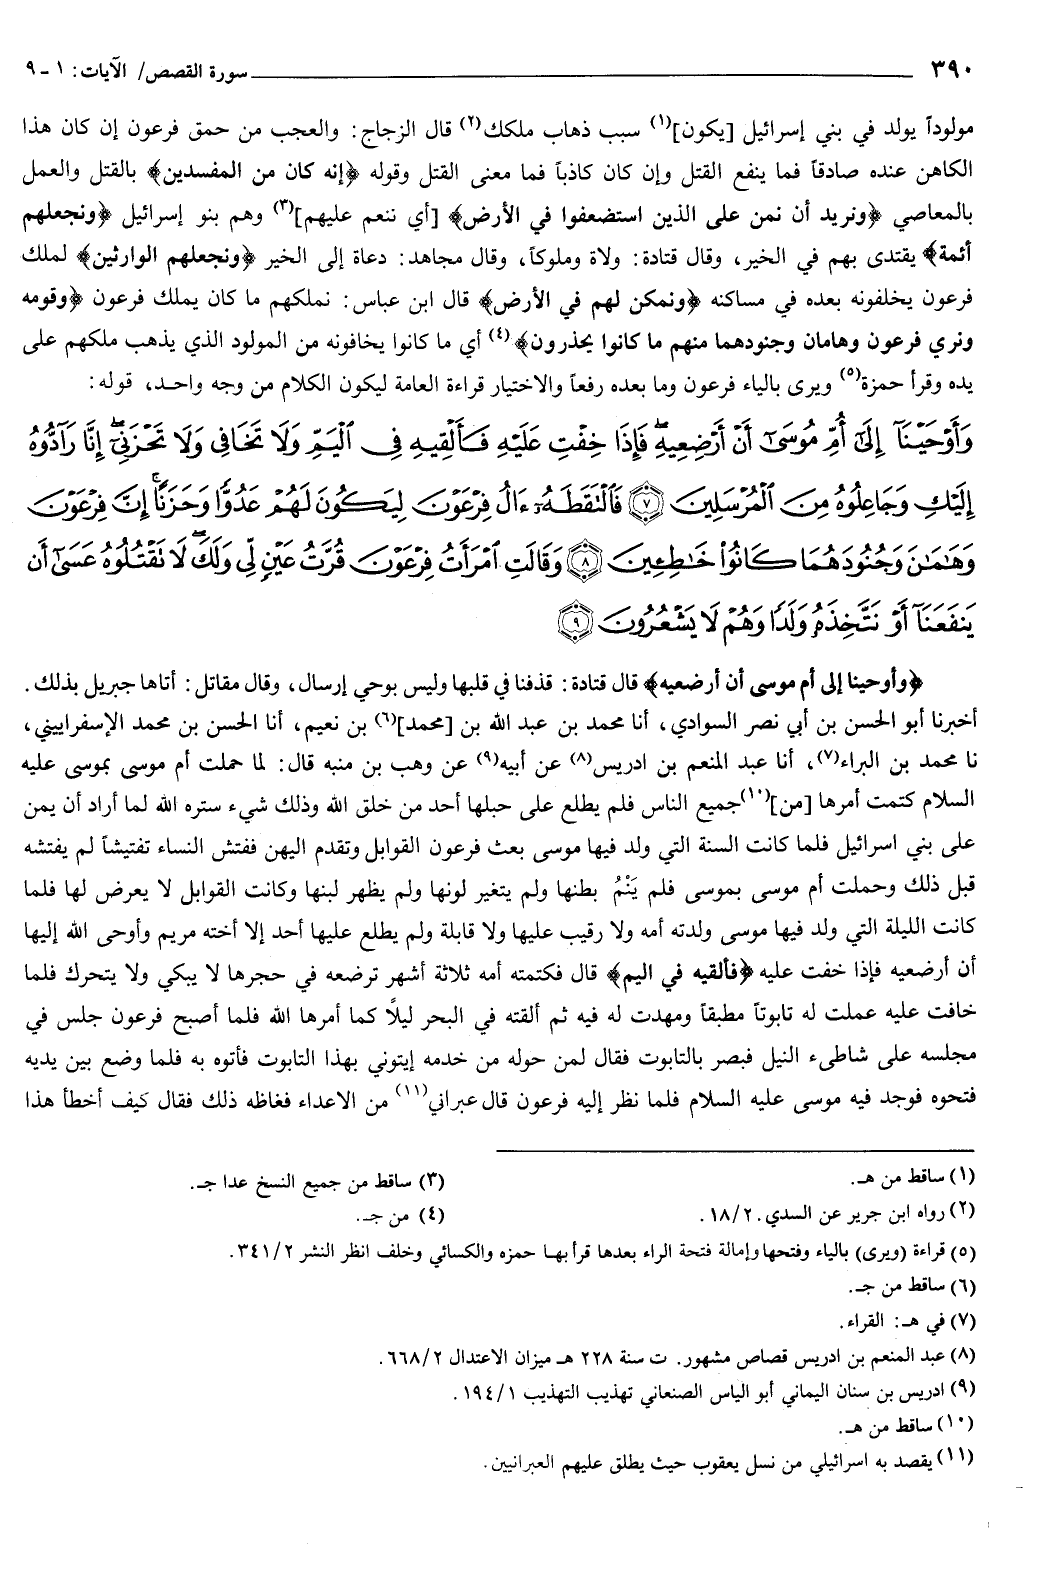 ٣٩٠ سورة القصص/ الآيات: ١ - ٩
مولوداً يولد في بني إسرائيل [يكون](١) سبب ذهاب ملكك(٢) قال الزجاج: والعجب من حمق فرعون إن كان هذا
الكاهن عنده صادقاً فما ينفع القتل وإن كان كاذباً فما معنى القتل وقوله ﴿إنه كان من المفسدين﴾ بالقتل والعمل
بالمعاصي ﴿ونريد أن نمن على الذين استضعفوا في الأرض﴾ [أي ننعم عليهم](٣) وهم بنو إسرائيل ﴿ونجعلهم
أئمة﴾ يقتدى بهم في الخير، وقال قتادة: ولاة وملوكاً، وقال مجاهد: دعاة إلى الخير ﴿ونجعلهم الوارثين﴾ لملك
فرعون يخلفونه بعده في مساكنه ﴿ونمكن لهم في الأرض﴾ قال ابن عباس: نملكهم ما كان يملك فرعون ﴿وقومه
ونري فرعون وهامان وجنودهما منهم ما كانوا يحذرون﴾(٤) أي ما كانوا يخافونه من المولود الذي يذهب ملكهم على
يده وقرأ حمزة(٥) ويرى بالياء فرعون وما بعده رفعاً والاختيار قراءة العامة ليكون الكلام من وجه واحد، قوله:
وَأَوْحَيْنَآ إِلَىٰٓ أُمِّ مُوسَىٰٓ أَنْ أَرْضِعِيهِۖ فَإِذَا خِفْتِ عَلَيْهِ فَأَلْقِيهِ فِى ٱلْيَمِّ وَلَا تَخَافِى وَلَا تَحْزَنِىٓۖ إِنَّا رَآدُّوهُ
إِلَيْكِ وَجَاعِلُوهُ مِنَ ٱلْمُرْسَلِينَ ﴿٧﴾ فَٱلْتَقَطَهُۥٓ ءَالُ فِرْعَوْنَ لِيَكُونَ لَهُمْ عَدُوًّا وَحَزَنًاۗ إِنَّ فِرْعَوْنَ
وَهَٰمَٰنَ وَجُنُودَهُمَا كَانُوا۟ خَٰطِـِٔينَ ﴿٨﴾ وَقَالَتِ ٱمْرَأَتُ فِرْعَوْنَ قُرَّتُ عَيْنٍ لِّى وَلَكَۖ لَا تَقْتُلُوهُ عَسَىٰٓ أَن
يَنفَعَنَآ أَوْ نَتَّخِذَهُۥ وَلَدًا وَهُمْ لَا يَشْعُرُونَ ﴿٩﴾
﴿وأوحينا إلى أم موسى أن أرضعيه﴾ قال قتادة: قذفنا في قلبها وليس بوحي إرسال، وقال مقاتل: أتاها جبريل بذلك.
أخبرنا أبو الحسن بن أبي نصر السوادي، أنا محمد بن عبد الله بن [محمد](٦) بن نعيم، أنا الحسن بن محمد الإسفراييني،
نا محمد بن البراء(٧)، أنا عبد المنعم بن ادريس(٨) عن أبيه(٩) عن وهب بن منبه قال: لما حملت أم موسى بموسى عليه
السلام كتمت أمرها [من](١٠) جميع الناس فلم يطلع على حبلها أحد من خلق الله وذلك شيء ستره الله لما أراد أن يمن
على بني اسرائيل فلما كانت السنة التي ولد فيها موسى بعث فرعون القوابل وتقدم اليهن ففتش النساء تفتيشاً لم يفتشه
قبل ذلك وحملت أم موسى بموسى فلم يَنْمُ بطنها ولم يتغير لونها ولم يظهر لبنها وكانت القوابل لا يعرض لها فلما
كانت الليلة التي ولد فيها موسى ولدته أمه ولا رقيب عليها ولا قابلة ولم يطلع عليها أحد إلا أخته مريم وأوحى الله إليها
أن أرضعيه فإذا خفت عليه ﴿فألقيه في اليم﴾ قال فكتمته أمه ثلاثة أشهر ترضعه في حجرها لا يبكي ولا يتحرك فلما
خافت عليه عملت له تابوتاً مطبقاً ومهدت له فيه ثم ألقته في البحر ليلًا كما أمرها الله فلما أصبح فرعون جلس في
مجلسه على شاطىء النيل فبصر بالتابوت فقال لمن حوله من خدمه إيتوني بهذا التابوت فأتوه به فلما وضع بين يديه
فتحوه فوجد فيه موسى عليه السلام فلما نظر إليه فرعون قال عبراني(١١) من الاعداء فغاظه ذلك فقال كيف أخطأ هذا
(١) ساقط من هـ. (٣) ساقط من جميع النسخ عدا جـ.
(٢) رواه ابن جرير عن السدي. ١٨/٢. (٤) من جـ.
(٥) قراءة (ويرى) بالياء وفتحها وإمالة فتحة الراء بعدها قرأ بهـا حمزه والكسائي وخلف انظر النشر ٣٤١/٢.
(٦) ساقط من جـ.
(٧) في هـ: القراء.
(٨) عبد المنعم بن ادريس قصاص مشهور. ت سنة ٢٢٨ هـ ميزان الاعتدال ٦٦٨/٢.
(٩) ادريس بن سنان اليماني أبو الياس الصنعاني تهذيب التهذيب ١٩٤/١.
(١٠) ساقط من هـ.
(١١) يقصد به اسرائيلي من نسل يعقوب حيث يطلق عليهم العبرانيين.